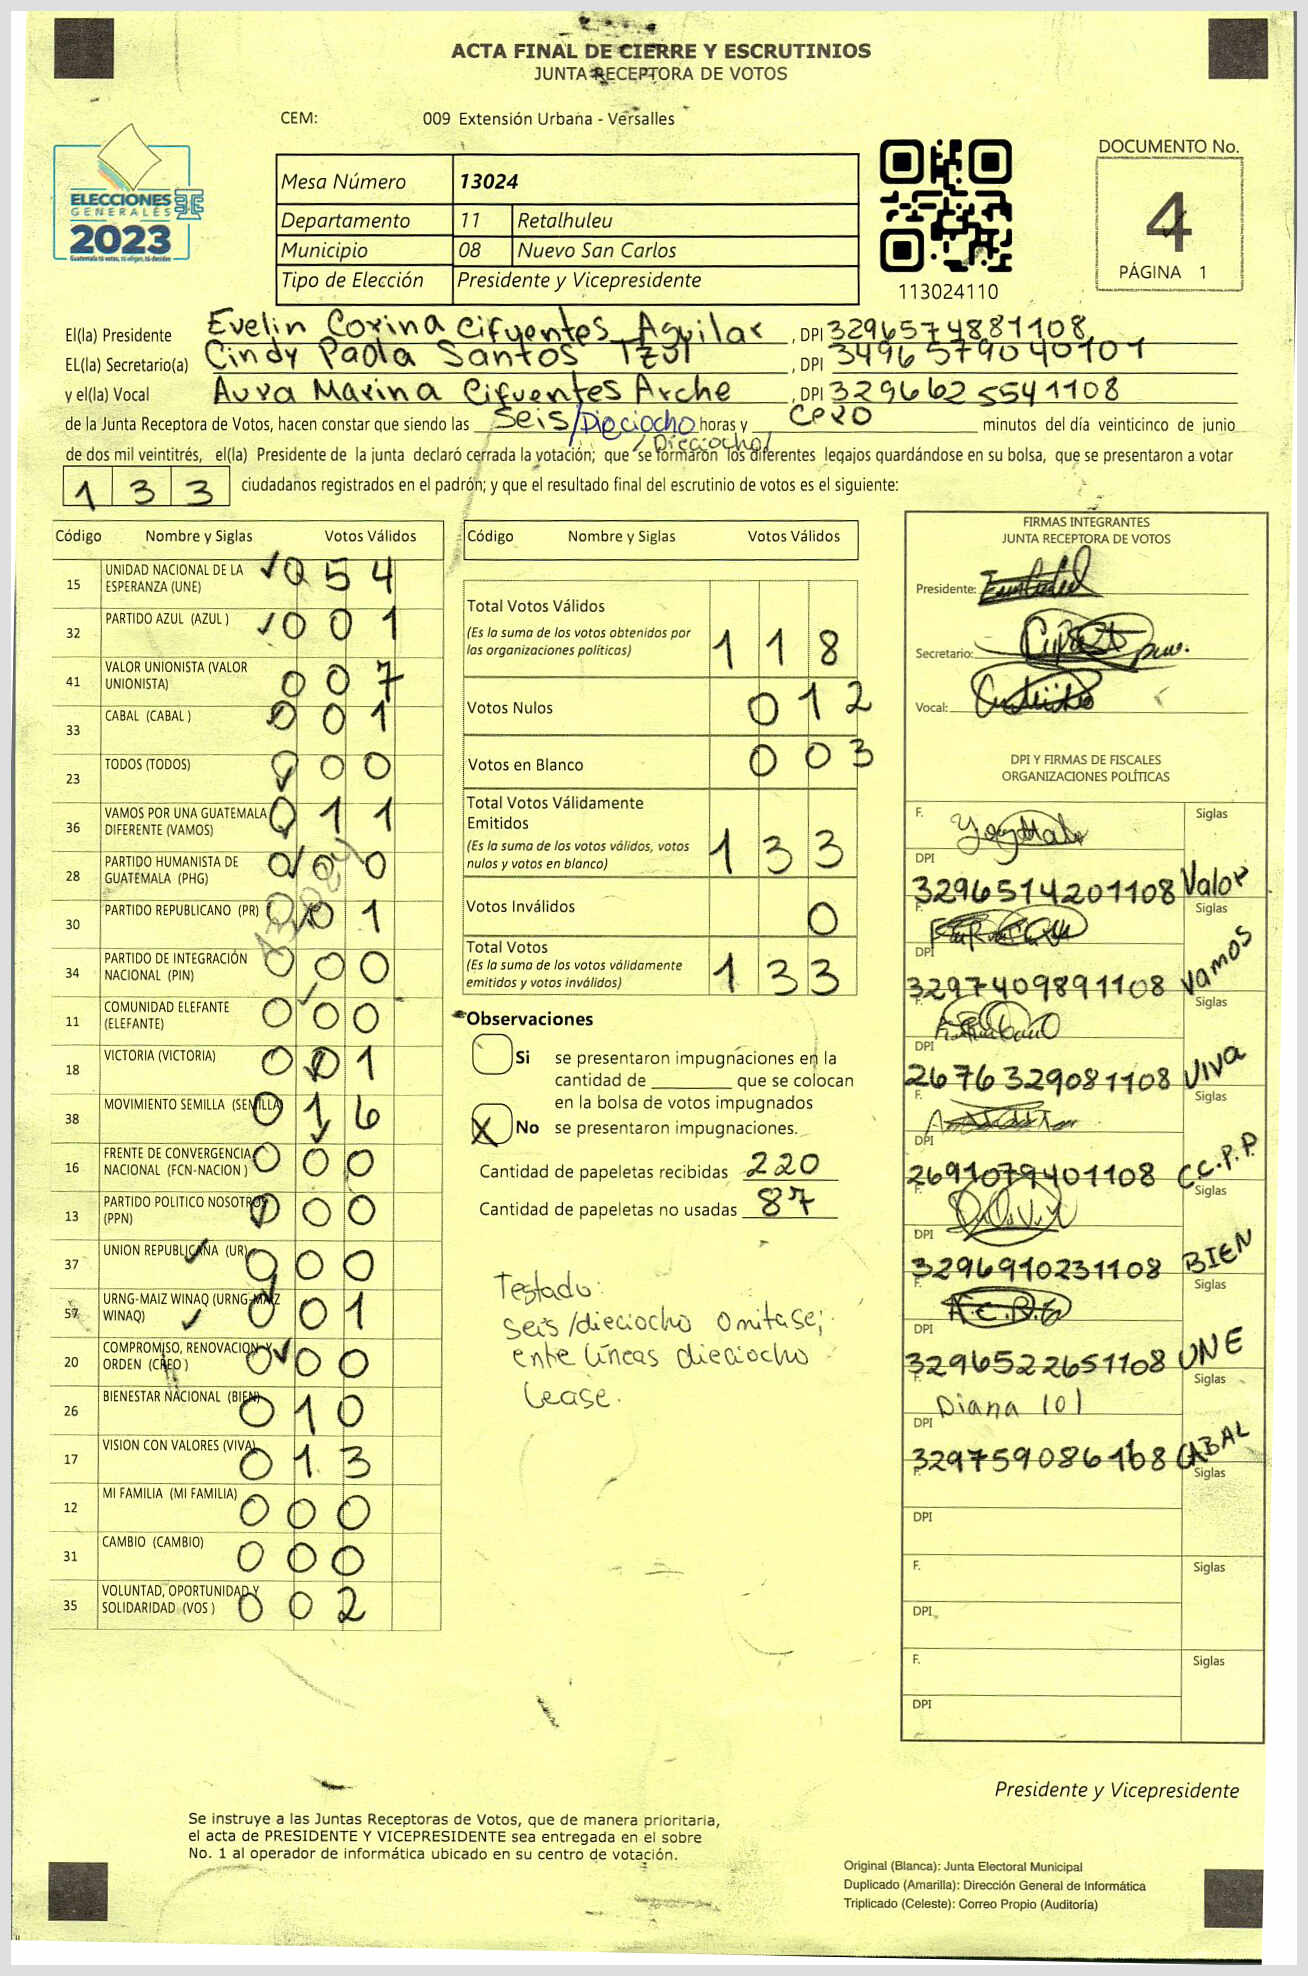 ACTA FINAL DE CIERRE Y ESCRUTINIOS
JUNTA RECEPTORA DE VOTOS
CEM: 009 Extensión Urbana - Versalles
ELECCIONES
GENERALES
2023
Guatemala tú votas, tú eliges, tú decides
Mesa Número 13024
Departamento 11 Retalhuleu
Municipio 08 Nuevo San Carlos
Tipo de Elección Presidente y Vicepresidente
113024110
DOCUMENTO No.
4
PÁGINA 1
El(la) Presidente Evelin Corina Cifuentes Aguilar , DPI 3296574881108
EL(la) Secretario(a) Cindy Paola Santos Tzul , DPI 3496579040101
y el(la) Vocal Aura Marina Cifuentes Arche , DPI 3296625541108
de la Junta Receptora de Votos, hacen constar que siendo las seis/Dieciocho horas y cero minutos del día veinticinco de junio
/Dieciocho/
de dos mil veintitrés, el(la) Presidente de la junta declaró cerrada la votación; que se formaron los diferentes legajos quardándose en su bolsa, que se presentaron a votar
133 ciudadanos registrados en el padrón; y que el resultado final del escrutinio de votos es el siguiente:
Código Nombre y Siglas Votos Válidos
15 UNIDAD NACIONAL DE LA ESPERANZA (UNE) 054
32 PARTIDO AZUL (AZUL ) 001
41 VALOR UNIONISTA (VALOR UNIONISTA) 007
33 CABAL (CABAL ) 001
23 TODOS (TODOS) 000
36 VAMOS POR UNA GUATEMALA DIFERENTE (VAMOS) 011
28 PARTIDO HUMANISTA DE GUATEMALA (PHG) 000
30 PARTIDO REPUBLICANO (PR) 001
34 PARTIDO DE INTEGRACIÓN NACIONAL (PIN) 000
11 COMUNIDAD ELEFANTE (ELEFANTE) 000
18 VICTORIA (VICTORIA) 001
38 MOVIMIENTO SEMILLA (SEMILLA) 016
16 FRENTE DE CONVERGENCIA NACIONAL (FCN-NACION ) 000
13 PARTIDO POLITICO NOSOTROS (PPN) 000
37 UNION REPUBLICANA (UR) 000
57 URNG-MAIZ WINAQ (URNG-MAIZ WINAQ) 001
20 COMPROMISO, RENOVACION Y ORDEN (CREO ) 000
26 BIENESTAR NACIONAL (BIEN) 010
17 VISION CON VALORES (VIVA) 013
12 MI FAMILIA (MI FAMILIA) 000
31 CAMBIO (CAMBIO) 000
35 VOLUNTAD, OPORTUNIDAD Y SOLIDARIDAD (VOS ) 002
Código Nombre y Siglas Votos Válidos
Total Votos Válidos
(Es la suma de los votos obtenidos por
las organizaciones políticas) 118
Votos Nulos 012
Votos en Blanco 003
Total Votos Válidamente
Emitidos
(Es la suma de los votos válidos, votos
nulos y votos en blanco) 133
Votos Inválidos 0
Total Votos
(Es la suma de los votos válidamente
emitidos y votos inválidos) 133
Observaciones
Si se presentaron impugnaciones en la
cantidad de ________ que se colocan
en la bolsa de votos impugnados
X No se presentaron impugnaciones.
Cantidad de papeletas recibidas 220
Cantidad de papeletas no usadas 87
Testado:
seis/dieciocho Omitase;
entre líneas dieciocho
Lease.
FIRMAS INTEGRANTES
JUNTA RECEPTORA DE VOTOS
Presidente:
Secretario:
Vocal:
DPI Y FIRMAS DE FISCALES
ORGANIZACIONES POLÍTICAS
F. Siglas
DPI 3296514201108 Valor
F. Siglas
DPI 3297409891108 Vamos
F. Siglas
DPI 2676329081108 VIVA
F. Siglas
DPI 2691079401108 C.C.P.P
F. Siglas
DPI 3296910231108 BIEN
F. Siglas
DPI 3296522651108 UNE
F. Diana 101 Siglas
DPI 3297590861108 CABAL
F. Siglas
DPI
F. Siglas
DPI
F. Siglas
DPI
Presidente y Vicepresidente
Se instruye a las Juntas Receptoras de Votos, que de manera prioritaria,
el acta de PRESIDENTE Y VICEPRESIDENTE sea entregada en el sobre
No. 1 al operador de informática ubicado en su centro de votación.
Original (Blanca): Junta Electoral Municipal
Duplicado (Amarilla): Dirección General de Informática
Triplicado (Celeste): Correo Propio (Auditoría)